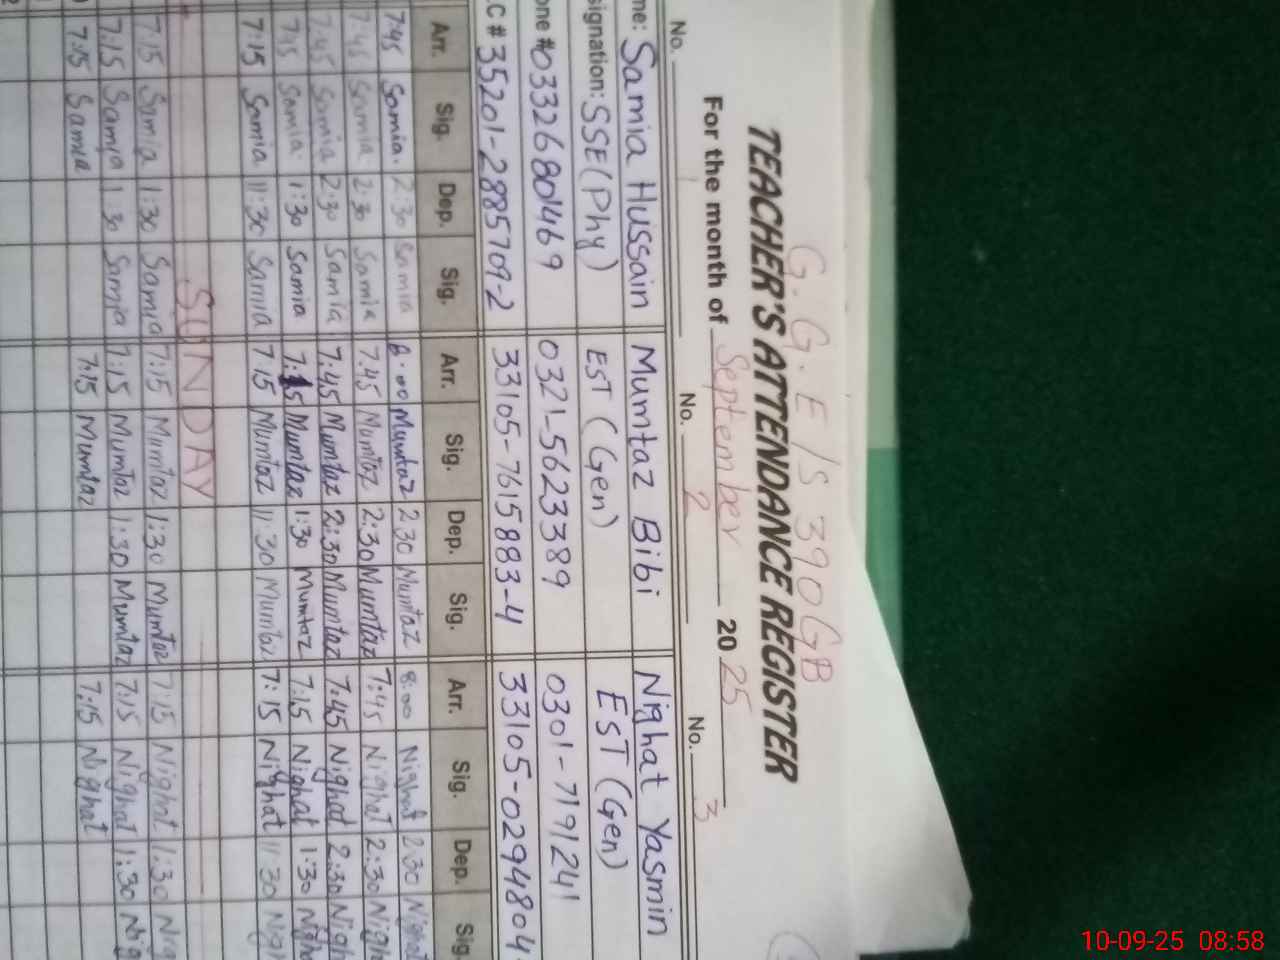 G.G.E/S 390GB
TEACHER'S ATTENDANCE REGISTER
For the month of September 2025
No. 1 No. 2 No. 3
me: Samia Hussain Mumtaz Bibi Nighat Yasmin
signation: SSE (Phy) EST (Gen) EST (Gen)
one # 03326801469 0321-5623389 0301-7191241
C # 35201-2885709-2 33105-7615883-4 33105-0294804
Arr. Sig. Dep. Sig. Arr. Sig. Dep. Sig. Arr. Sig. Dep. Sig.
7:45 Samia. 2:30 Samia 8:00 Mumtaz 2:30 Mumtaz 8:00 Nighat 2:30 Nighat
7:45 Samia 2:30 Samia 7:45 Mumtaz 2:30 Mumtaz 7:45 Nighat 2:30 Nigh
7:45 Samia 2:30 Samia 7:45 Mumtaz 2:30 Mumtaz 7:45 Nighat 2:30 Nigh
7:15 Samia. 1:30 Samia 7:15 Mumtaz 1:30 Mumtaz 7:15 Nighat 1:30 Nigh
7:15 Samia 11:30 Samia 7:15 Mumtaz 11:30 Mumtaz 7:15 Nighat 11:30 Nigh
SUNDAY
7:15 Samia 1:30 Samia 7:15 Mumtaz 1:30 Mumtaz 7:15 Nighat 1:30 Nig
7:15 Samia 1:30 Samia 7:15 Mumtaz 1:30 Mumtaz 7:15 Nighat 1:30 Nig
7:15 Samia 7:15 Mumtaz 7:15 Nighat
10-09-25 08:58